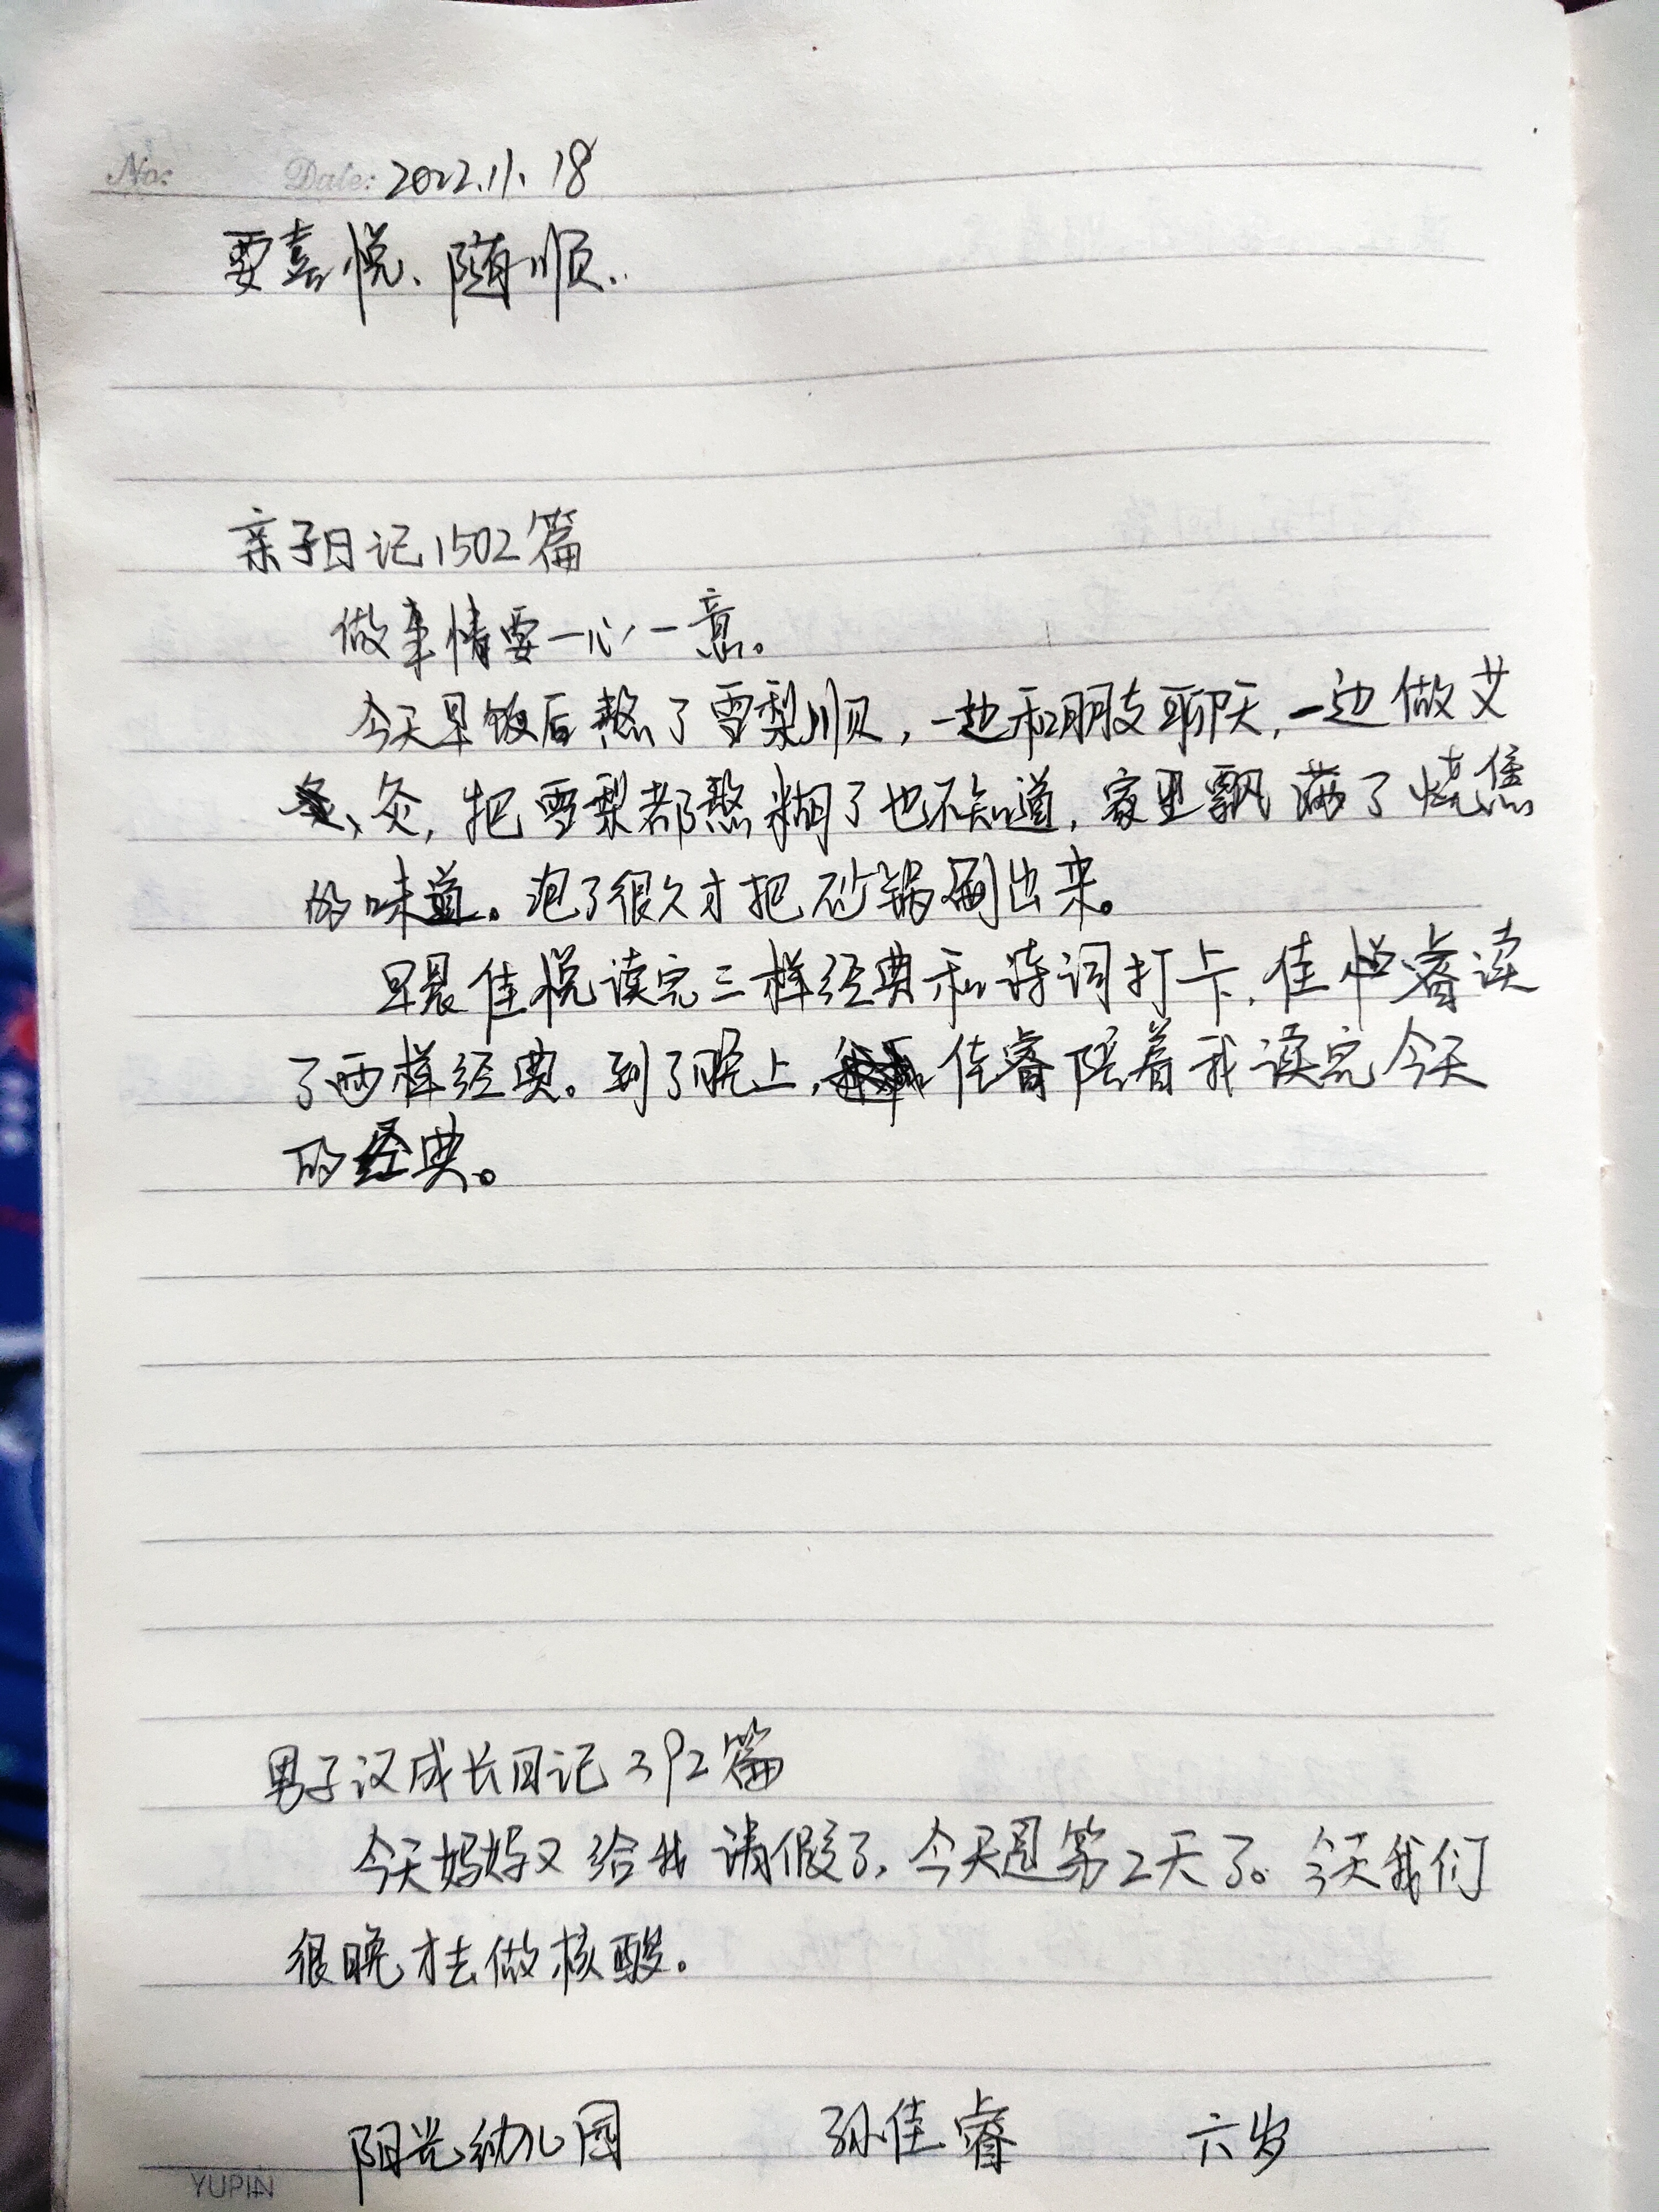 No: Date: 2022.11.18
要喜悦、随顺..
亲子日记1502篇
做事情要一心一意。
今天早饭后熬了雪梨顺，一边和朋友聊天，一边做艾
灸，把雪梨都熬糊了也不知道，家里飘满了烧焦
的味道。泡了很久才把砂锅刷出来。
早晨佳悦读完三样经典和诗词打卡，佳睿读
了两样经典。到了晚上，佳睿陪着我读完今天
的经典。
男子汉成长日记392篇
今天妈妈又给我请假了，今天是第2天了。今天我们
很晚才去做核酸。
阳光幼儿园 孙佳睿 六岁
YUPIN